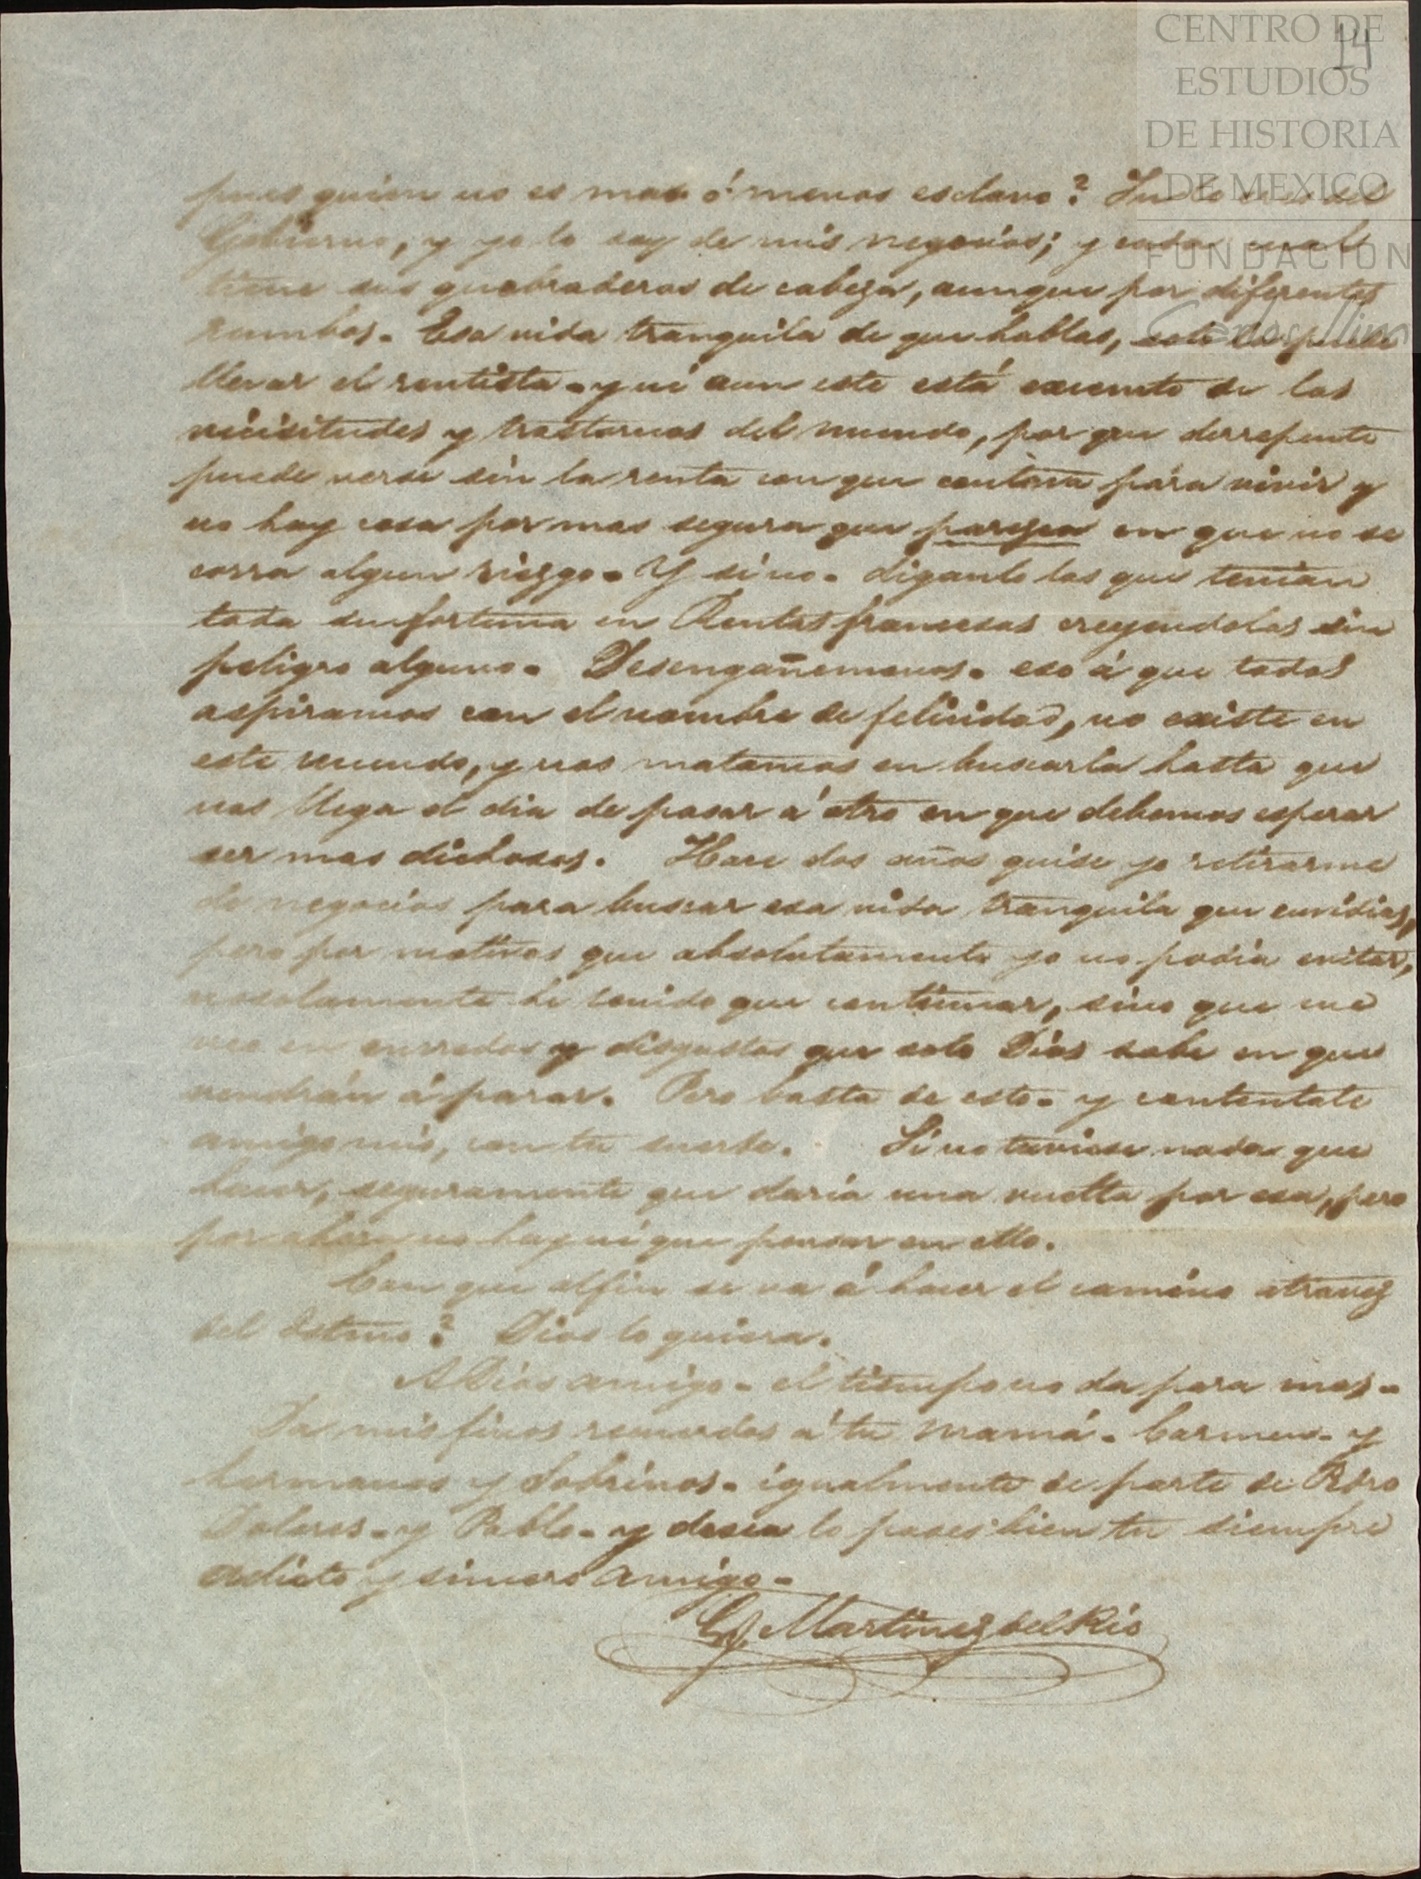 CENTRO DE
ESTUDIOS
DE HISTORIA
DE MEXICO
FUNDACIÓN
14
pues quien no es mas ó menos esclavo? Tu lo eres del
Gobierno, y yo lo soy de mis negocios; y cada cual
tiene sus quebraderos de cabeza, aunque por diferentes
rumbos. Esa vida tranquila de que hablas, solo la puede
llevar el rentista - y ni aun este está esento de las
vicisitudes y trastornos del mundo, por que derrepente
puede verse sin la renta con que contava para vivir y
no hay cosa por mas segura que paresca en que no se
corra algun riezgo. Y sino - diganlo los que tenian
toda su fortuna en Rentas francesas creyendolas sin
peligro alguno. Desengañemonos - eso á que todos
aspiramos con el nombre de felicidad, no existe en
este mundo, y nos matamos en buscarla hasta que
nos llega el dia de pasar a otro en que debemos esperar
ser mas dichosos. Hace dos años quise yo retirarme
de negocios para buscar esa vida tranquila que envidias,
pero por motivos que absolutamente yo no podia evitar,
no solamente he tenido que continuar, sino que me
veo en enredos y disgustos que solo Dios sabe en que
vendrán á parar. Pero basta de esto - y contentate
amigo mio, con tu suerte. Si no tuviese nada que
hacer, seguramente que daria una vuelta por esa, pero
por ahora no hay ni que pensar en ello.
Con que alfin se va á hacer el camino atravez
del Istmo? Dios lo quiera.
A Dios amigo - el tiempo no da para mas -
Da mis finos recuerdos á tu mamá - Carmen - y
hermanos y sobrinos - igualmente de parte de Pedro
Dolores - y Pablo - y desea lo pases bien tu siempre
adicto y sincero amigo -
G Martinez del Rio